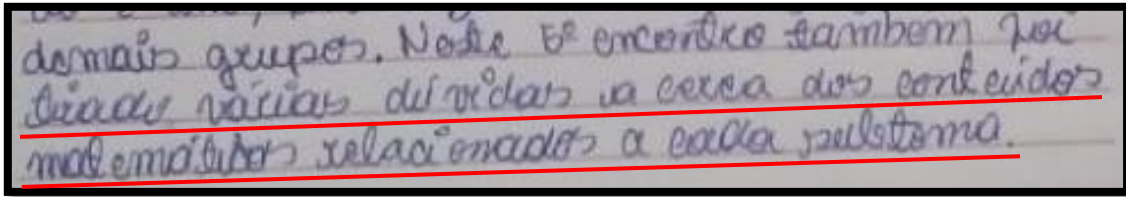 demais grupos. Neste 5º encontro tambem foi
tirado várias dúvidas a cerca dos conteúdos
matemáticos relacionados a cada subtema.